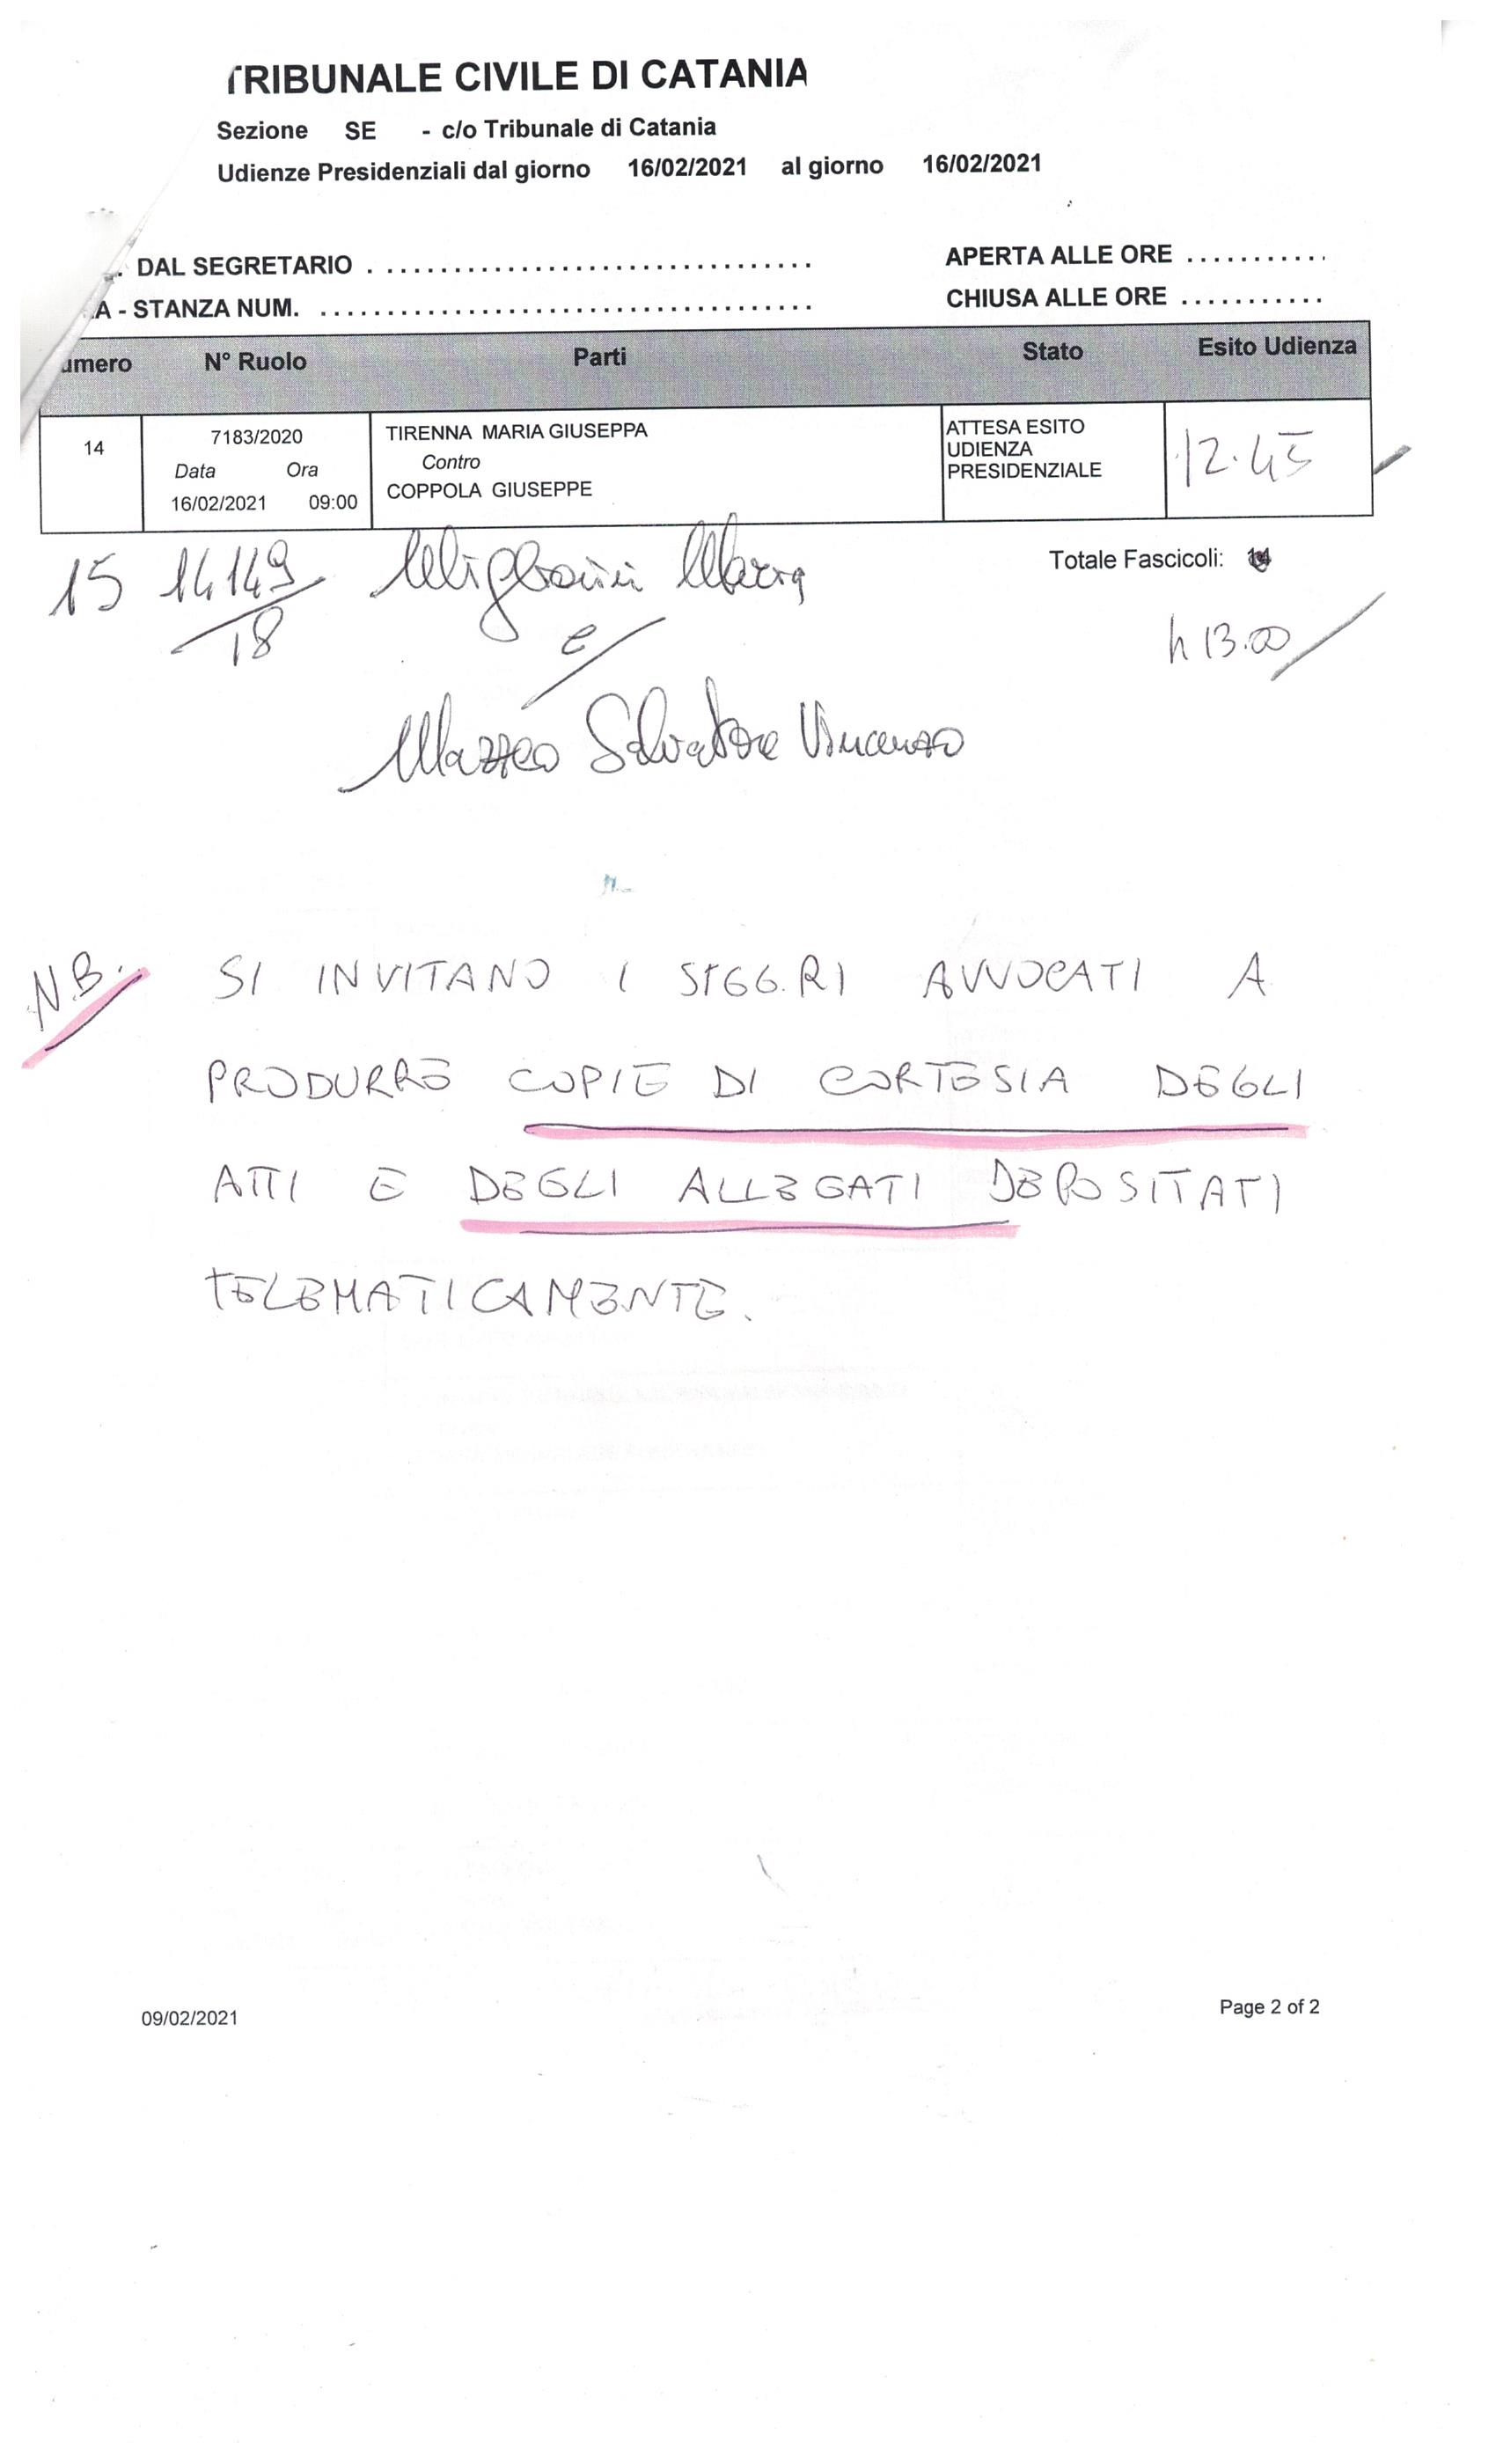 TRIBUNALE CIVILE DI CATANIA
Sezione SE - c/o Tribunale di Catania
Udienze Presidenziali dal giorno 16/02/2021 al giorno 16/02/2021
DAL SEGRETARIO ............................... APERTA ALLE ORE ...........
A - STANZA NUM. .................................. CHIUSA ALLE ORE ...........
umero N° Ruolo Parti Stato Esito Udienza
14 7183/2020 TIRENNA MARIA GIUSEPPA ATTESA ESITO 12.45
Data Ora Contro UDIENZA
16/02/2021 09:00 COPPOLA GIUSEPPE PRESIDENZIALE
Totale Fascicoli:
15 14149/18
h 13.00
e/
Mazzeo Salvatore Vincenzo
N.B. SI INVITANO I SIGG.RI AVVOCATI A
PRODURRE COPIE DI CORTESIA DEGLI
ATTI E DEGLI ALLEGATI DEPOSITATI
TELEMATICAMENTE.
09/02/2021 Page 2 of 2